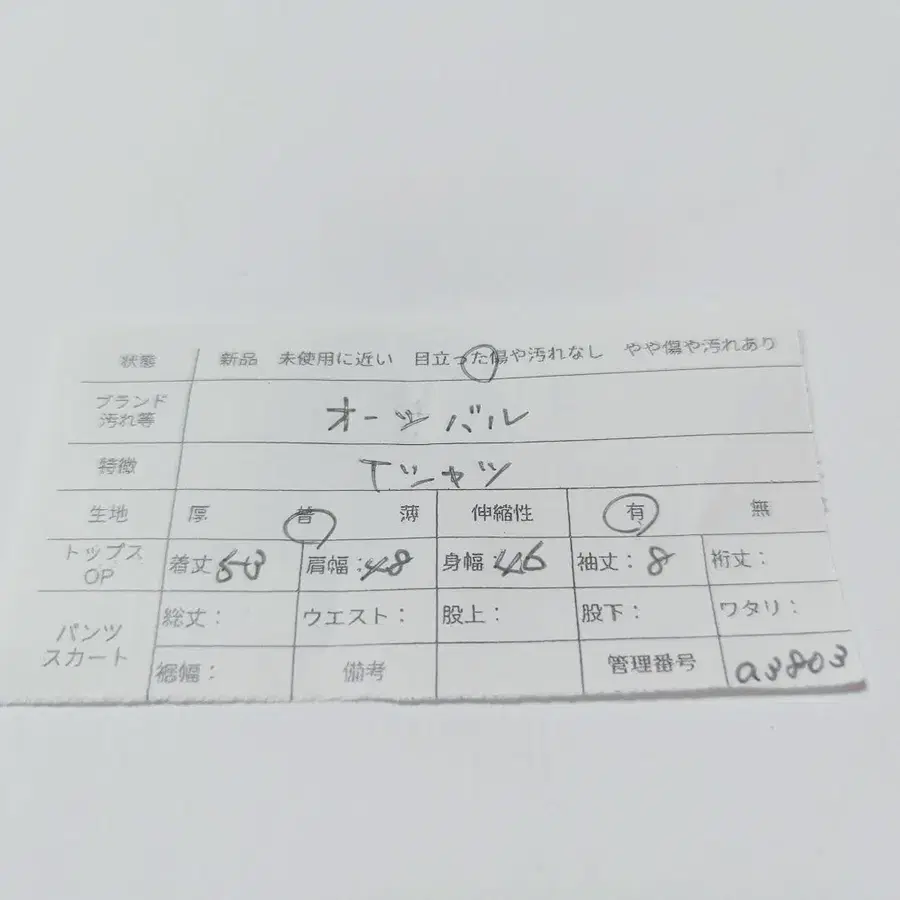 状態 新品 未使用に近い 目立った傷や汚れなし やや傷や汚れあり
ブランド
汚れ等
オーツバル
特徴 Tシャツ
生地 厚 普 薄 伸縮性 有 無
トップス
OP
着丈 53 肩幅:48 身幅:46 袖丈:8 裄丈:
パンツ
スカート
総丈: ウエスト: 股上: 股下: ワタリ:
裾幅: 備考 管理番号 a3803